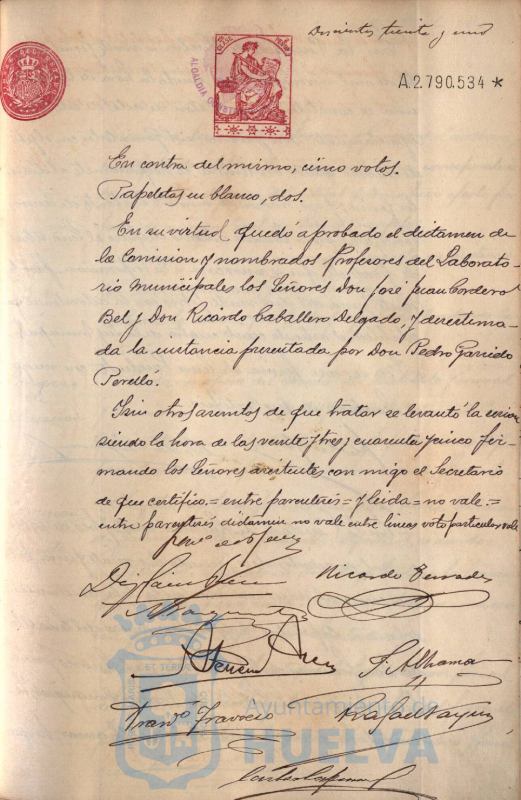 Doscientos treinta y uno
A.2.790.534 *
En contra del mismo, cinco votos.
Papeletas en blanco, dos.
En su virtud quedó aprobado el dictamen de
la Comision y nombrados Profesores del Laborato-
rio Municipales los Señores Don José Juan Cordero
Bel y Don Ricardo Caballero Delgado, y desestima-
da la instancia presentada por Don Pedro Garrido
Perelló.
Sin otros asuntos de que tratar se levantó la sesion
siendo la hora de las veinte y tres y cuarenta y cinco fir-
mando los Señores asistentes con migo el Secretario
de que certifico. = entre parentesis = y leida = no vale. =
entre parentesis dictamen no vale entre lineas voto particular vale
Ricardo Terrades
F. Alhama
Rafael
Ayuntamiento de
HUELVA